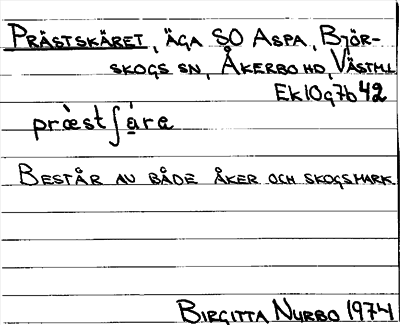 PRÄSTSKÄRET, ÄGA SO ASPA, BJÖR-
SKOGS SN, ÅKERBO HD, VÄSTML
Ek10g7b42
præ̀stʃá̱re
BESTÅR AV BÅDE ÅKER OCH SKOGSMARK
BIRGITTA NURBO 1974